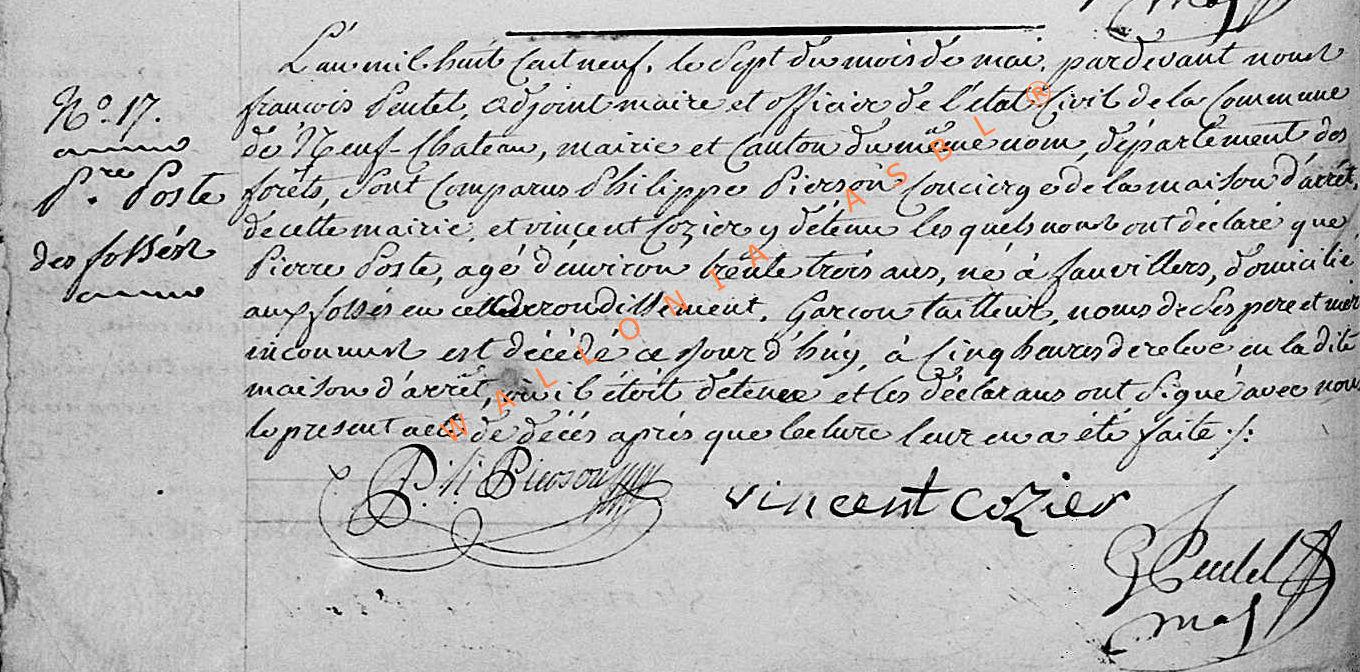 L'an mil huit Cent neuf, le Sept du mois de mai, pardevant nous
N.o 17.
françois Pentel, adjoint maire et officier de l'état Civil de la Commune
de Neuf-Chateau, mairie et Canton du même nom, département des
P.re Poste
forêts, Sont Comparus Philippe Pierson Concierge de la maison d'arrêt,
de cette mairie, et vincent Cozier y détenu les quels nous ont déclaré que
des fossés
Pierre Poste, agé d'environ trente trois ans, né à fauvillers, domicilié
aux fossés en cet arondissement, Garçon tailleur, noms de Ses pere et mere
inconnus est décédé ce jour d'huy, à Cinq heures de relevé en la dite
maison d'arrêt, où il étoit détenu et les déclarans ont Signé avec nous
le present acte de décés aprés que lecture leur en a été faite ./.
Ph Pierson
vincent cozier
Pentel
WALLONIA ASBL ®